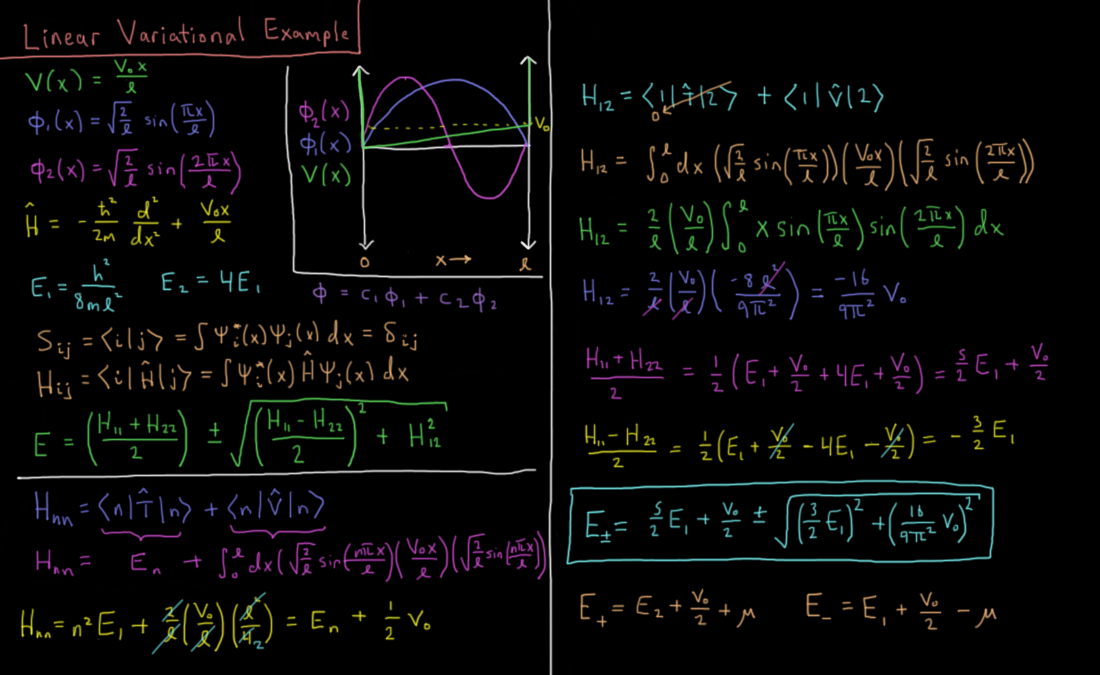 Linear Variational Example
V(x) = V₀x/ℓ
ϕ₁(x) = √(2/ℓ) sin(πx/ℓ)
ϕ₂(x) = √(2/ℓ) sin(2πx/ℓ)
Ĥ = -ħ²/2m d²/dx² + V₀x/ℓ
E₁ = h²/8mℓ² E₂ = 4E₁
ϕ₂(x)
ϕ₁(x)
V(x)
V₀
0 x→ ℓ
ϕ = c₁ϕ₁ + c₂ϕ₂
Sᵢⱼ = ⟨i|j⟩ = ∫Ψᵢ*(x)Ψⱼ(x) dx = δᵢⱼ
Hᵢⱼ = ⟨i|Ĥ|j⟩ = ∫Ψᵢ*(x) Ĥ Ψⱼ(x) dx
E = ((H₁₁ + H₂₂)/2) ± √(((H₁₁ - H₂₂)/2)² + H₁₂²)
Hₙₙ = ⟨n|T̂|n⟩ + ⟨n|V̂|n⟩
Hₙₙ = Eₙ + ∫₀ˡ dx(√(2/ℓ) sin(nπx/ℓ))(V₀x/ℓ)(√(2/ℓ) sin(nπx/ℓ))
Hₙₙ = n²E₁ + (2/ℓ)(V₀/ℓ)(ℓ²/4₂) = Eₙ + 1/2 V₀
H₁₂ = ⟨1|T̂|2⟩ + ⟨1|V̂|2⟩
0
H₁₂ = ∫₀ˡ dx (√(2/ℓ) sin(πx/ℓ))(V₀x/ℓ)(√(2/ℓ) sin(2πx/ℓ))
H₁₂ = 2/ℓ (V₀/ℓ) ∫₀ˡ x sin(πx/ℓ) sin(2πx/ℓ) dx
H₁₂ = 2/ℓ (V₀/ℓ)(-8ℓ²/9π²) = -16/9π² V₀
(H₁₁ + H₂₂)/2 = 1/2 (E₁ + V₀/2 + 4E₁ + V₀/2) = 5/2 E₁ + V₀/2
(H₁₁ - H₂₂)/2 = 1/2 (E₁ + V₀/2 - 4E₁ - V₀/2) = -3/2 E₁
E± = 5/2 E₁ + V₀/2 ± √((3/2 E₁)² + (16/9π² V₀)²)
E₊ = E₂ + V₀/2 + μ E₋ = E₁ + V₀/2 - μ